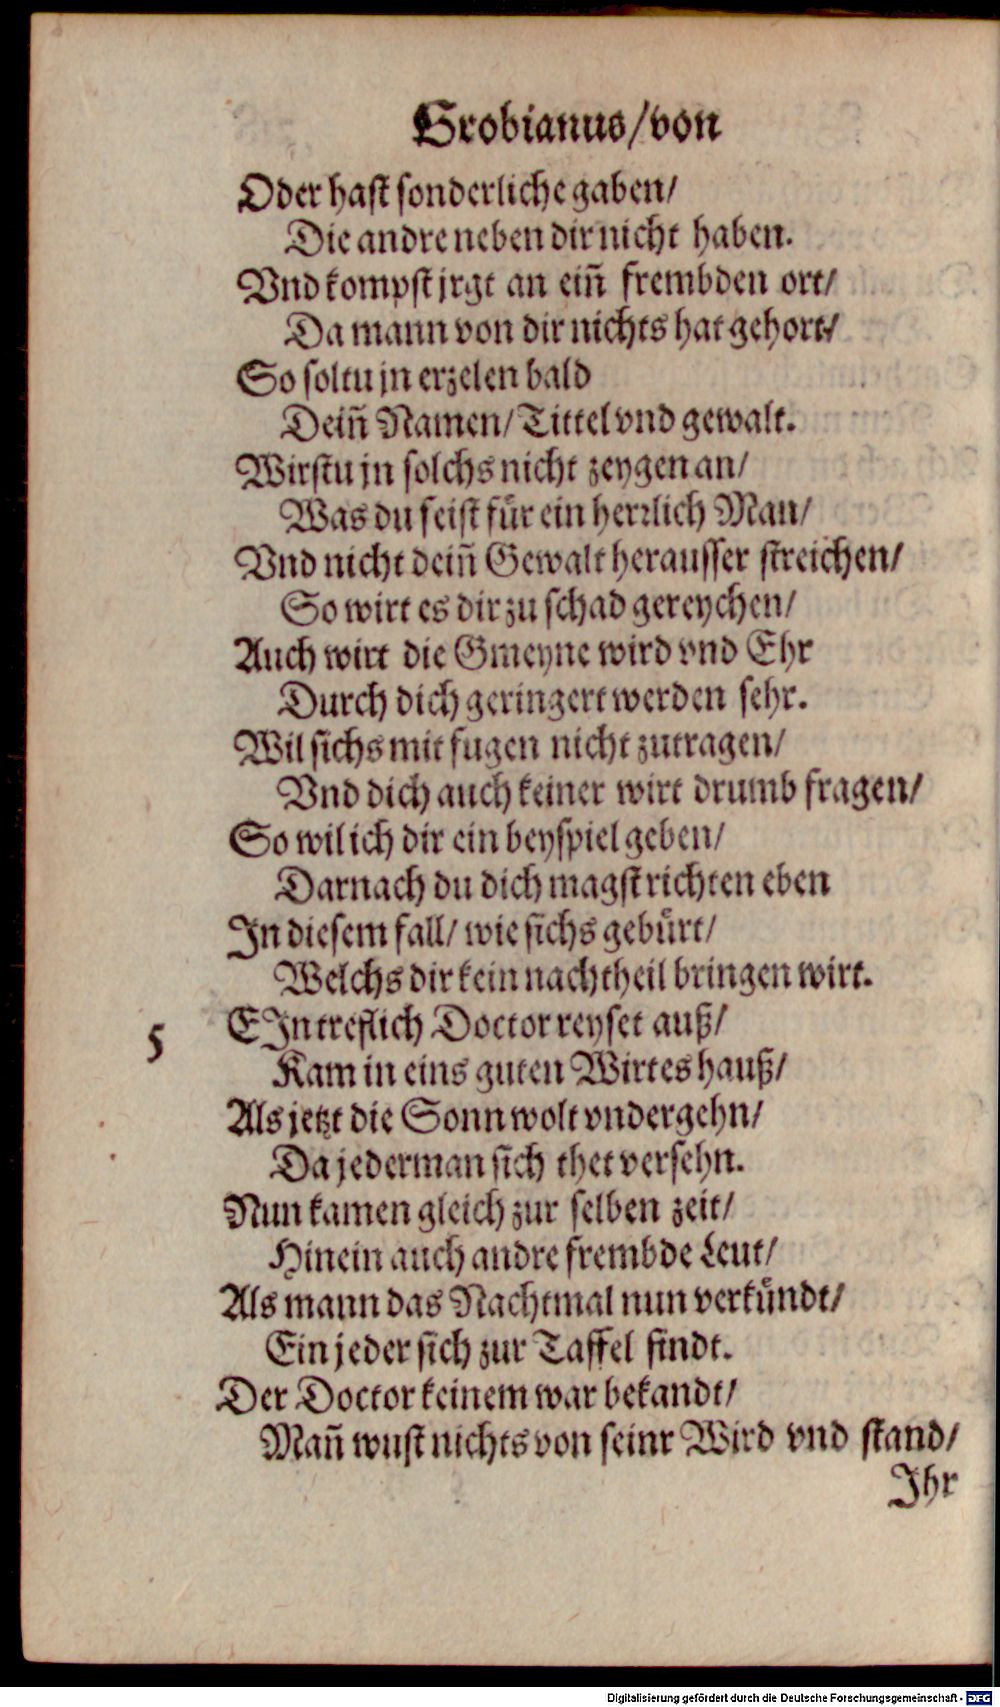 Grobianus/von
Oder hast sonderliche gaben/
Die andre neben dir nicht haben.
Vnd kompst jrgt an eiñ frembden ort/
Da mann von dir nichts hat gehort/
So soltu jn erzelen bald
Deiñ Namen/Tittel vnd gewalt.
Wirstu jn solchs nicht zeygen an/
Was du seist für ein herrlich Man/
Vnd nicht deiñ Gewalt herausser streichen/
So wirt es dir zu schad gereychen/
Auch wirt die Gmeyne wird vnd Ehr
Durch dich geringert werden sehr.
Wil sichs mit fugen nicht zutragen/
Vnd dich auch keiner wirt drumb fragen/
So wil ich dir ein beyspiel geben/
Darnach du dich magst richten eben
In diesem fall/ wie sichs gebürt/
Welchs dir kein nachtheil bringen wirt.
5 EIn treflich Doctor reyset auß/
Kam in eins guten Wirtes hauß/
Als jetzt die Sonn wolt vndergehn/
Da jederman sich thet versehn.
Nun kamen gleich zur selben zeit/
Hinein auch andre frembde Leut/
Als mann das Nachtmal nun verkündt/
Ein jeder sich zur Taffel findt.
Der Doctor keinem war bekandt/
Mañ wust nichts von seinr Wird vnd stand/
Ihr
Digitalisierung gefördert durch die Deutsche Forschungsgemeinschaft - DFG